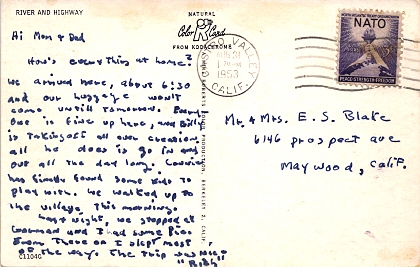 RIVER AND HIGHWAY
Hi Mom & Dad
How's everything at home?
We arrived here, about 6:30
and our luggage won't
come until tomorrow. Every
one is fine up here, and Billy
is taking off all over creation,
all he does is go in and
out all the day long. Connie
has finally found some kids to
play with. We walked up to
the village. This morning.
Last night, we stopped at
and I had some Pie.
From there on I slept most
of the way. The trip was nice
"Ruby"
C11040
NATURAL
Color Card
FROM KODACHROME
PRODUCTION, BERKELEY 2, CALIF.
VALLEY
1953
CALIF.
NATO
3¢
PEACE·STRENGTH·FREEDOM
Mr. & Mrs. E. S. Blake
6146 prospect ave
Maywood, Calif.